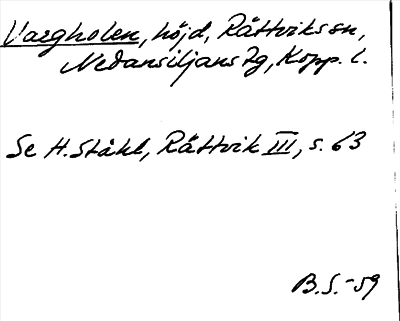 Vargholen, höjd, Rättviks sn,
Nedansiljans tg, Kopp. l.
Se H. Ståhl, Rättvik III, s. 63
B.S. -59